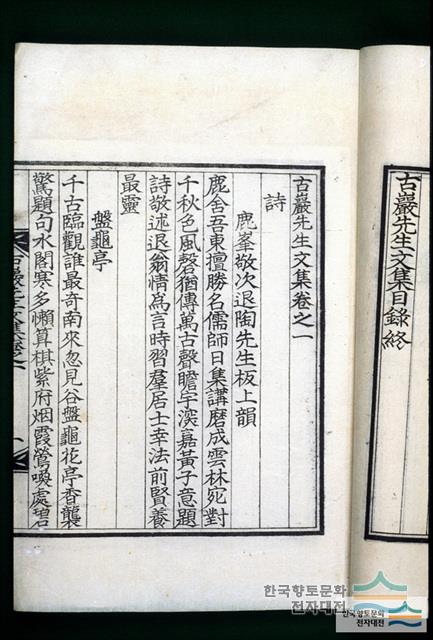 古巖先生文集目錄終
古巖先生文集卷之一
詩
鹿峯敬次退陶先生板上韻
鹿舍吾東擅勝名儒師日集講磨成雲林宛對
千秋色風磬猶傳萬古聲瞻宇深嘉黃子意題
詩敬述退翁情為言時習羣居士幸法前賢養
最靈
盤龜亭
千古臨觀誰最奇南來忽見谷盤龜花亭香襲
驚題句水閣寒多懶算棋紫府烟霞鶯喚處碧
古巖先生文集卷之一
한국향토문화
전자대전
한국향토문화
전자대전